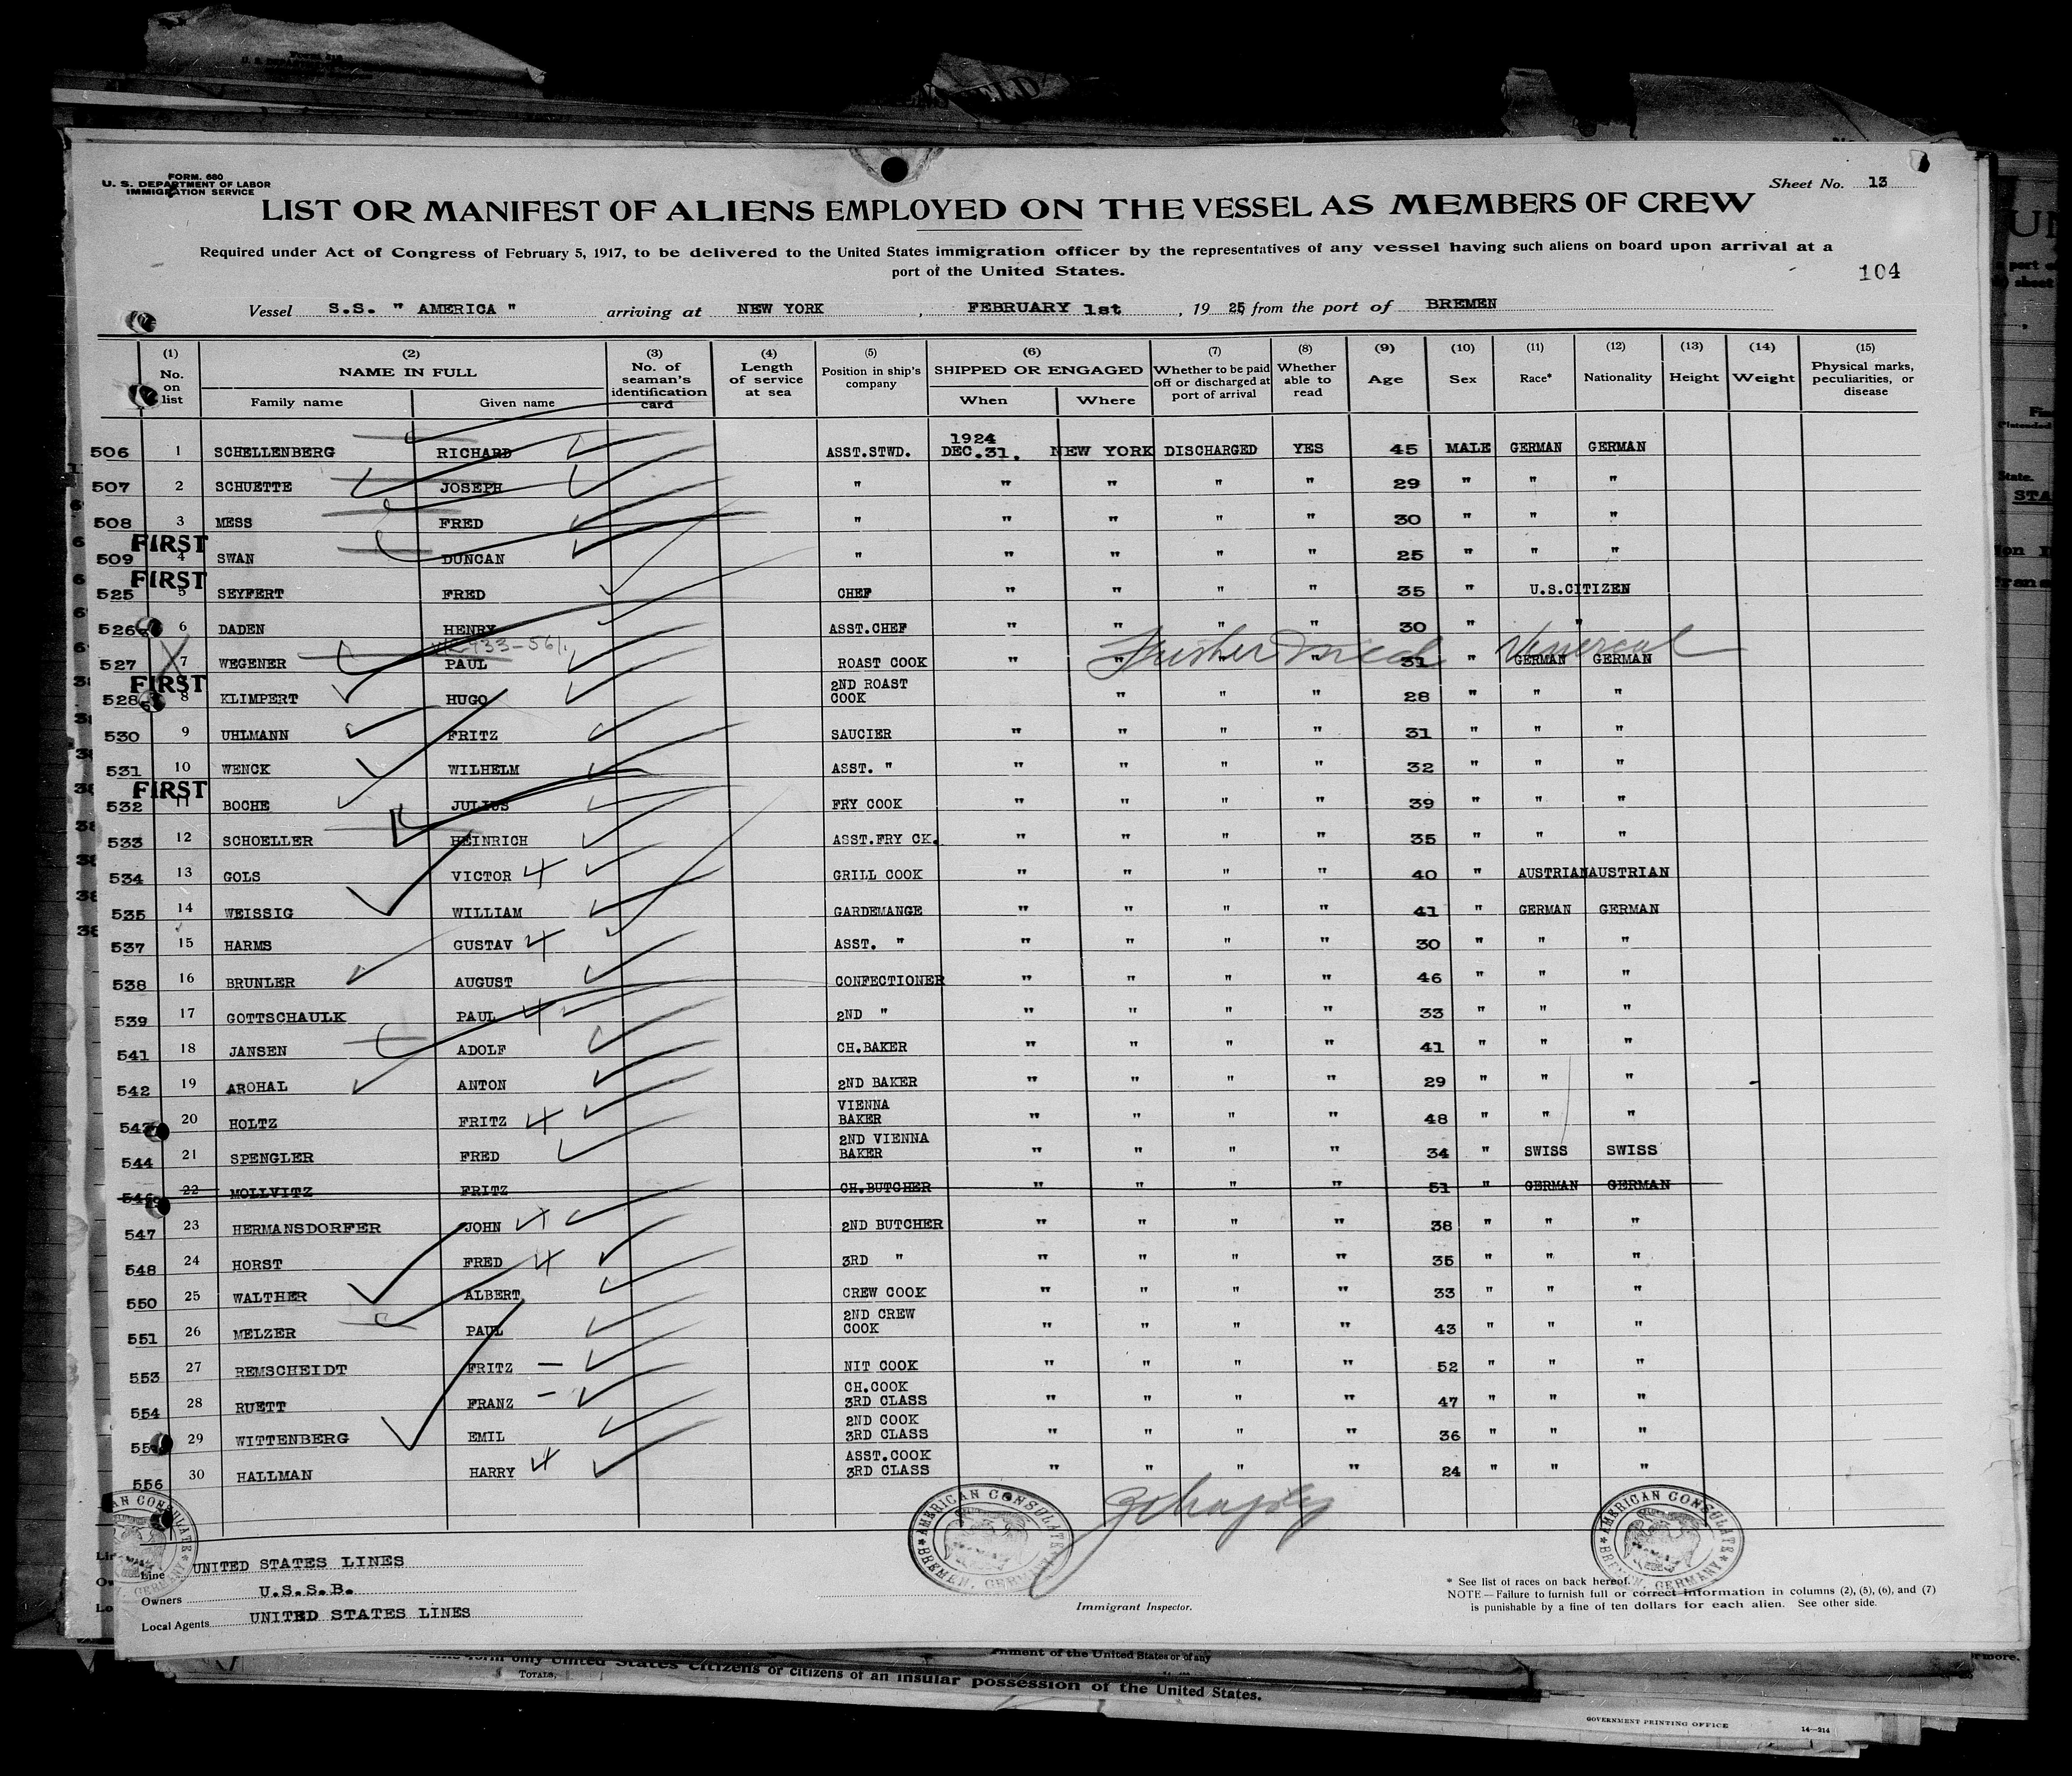 FORM. 680
U. S. DEPARTMENT OF LABOR
IMMIGRATION SERVICE
Sheet No. 13
LIST OR MANIFEST OF ALIENS EMPLOYED ON THE VESSEL AS MEMBERS OF CREW
Required under Act of Congress of February 5, 1917, to be delivered to the United States immigration officer by the representatives of any vessel having such aliens on board upon arrival at a
port of the United States.
104
Vessel S.S. " AMERICA " arriving at NEW YORK, FEBRUARY 1st, 19 25 from the port of BREMEN
(1) No. on list (2) NAME IN FULL Family name Given name (3) No. of seaman's identification card (4) Length of service at sea (5) Position in ship's company (6) SHIPPED OR ENGAGED When Where (7) Whether to be paid off or discharged at port of arrival (8) Whether able to read (9) Age (10) Sex (11) Race* (12) Nationality (13) Height (14) Weight (15) Physical marks, peculiarities, or disease
506 1 SCHELLENBERG RICHARD ASST.STWD. 1924 DEC.31. NEW YORK DISCHARGED YES 45 MALE GERMAN GERMAN
507 2 SCHUETTE JOSEPH " " " " " 29 " " "
508 3 MESS FRED " " " " " 30 " " "
FIRST
509 4 SWAN DUNCAN " " " " " 25 " " "
FIRST
525 5 SEYFERT FRED CHEF " " " " 35 " U.S.CITIZEN
526 6 DADEN HENRY ASST.CHEF " " " " 30 " "
527 7 WEGENER PAUL ROAST COOK " " " " 31 " GERMAN GERMAN
FIRST
528 8 KLIMPERT HUGO 2ND ROAST COOK " " " 28 " " "
530 9 UHLMANN FRITZ SAUCIER " " " " 31 " " "
531 10 WENCK WILHELM ASST. " " " " " 32 " " "
FIRST
532 11 BOCHE JULIUS FRY COOK " " " " 39 " " "
533 12 SCHOELLER HEINRICH ASST.FRY CK. " " " " 35 " " "
534 13 GOLS VICTOR GRILL COOK " " " " 40 " AUSTRIAN AUSTRIAN
535 14 WEISSIG WILLIAM GARDEMANGE " " " " 41 " GERMAN GERMAN
537 15 HARMS GUSTAV ASST. " " " " " 30 " " "
538 16 BRUNLER AUGUST CONFECTIONER " " " " 46 " " "
539 17 GOTTSCHAULK PAUL 2ND " " " " " 33 " " "
541 18 JANSEN ADOLF CH.BAKER " " " " 41 " " "
542 19 AROHAL ANTON 2ND BAKER " " " " 29 " " "
543 20 HOLTZ FRITZ VIENNA BAKER " " " " 48 " " "
544 21 SPENGLER FRED 2ND VIENNA BAKER " " " " 34 " SWISS SWISS
546 22 MOLLVITZ FRITZ CH.BUTCHER " " " " 51 " GERMAN GERMAN
547 23 HERMANSDORFER JOHN 2ND BUTCHER " " " " 38 " " "
548 24 HORST FRED 3RD " " " " " 35 " " "
550 25 WALTHER ALBERT CREW COOK " " " " 33 " " "
551 26 MELZER PAUL 2ND CREW COOK " " " " 43 " " "
553 27 REMSCHEIDT FRITZ NIT COOK " " " " 52 " " "
554 28 RUETT FRANZ CH.COOK 3RD CLASS " " " " 47 " " "
29 WITTENBERG EMIL 2ND COOK 3RD CLASS " " " " 36 " " "
556 30 HALLMAN HARRY ASST.COOK 3RD CLASS " " " " 24 " " "
AMERICAN CONSULATE BREMEN, GERMANY
AMERICAN CONSULATE BREMEN, GERMANY
Line UNITED STATES LINES
Owners U.S.S.B.
Local Agents UNITED STATES LINES
Immigrant Inspector.
* See list of races on back hereof.
NOTE—Failure to furnish full or correct information in columns (2), (5), (6), and (7)
is punishable by a fine of ten dollars for each alien. See other side.
form only United States citizens or citizens of an insular possession of the United States.
TOTALS,
GOVERNMENT PRINTING OFFICE 14—214